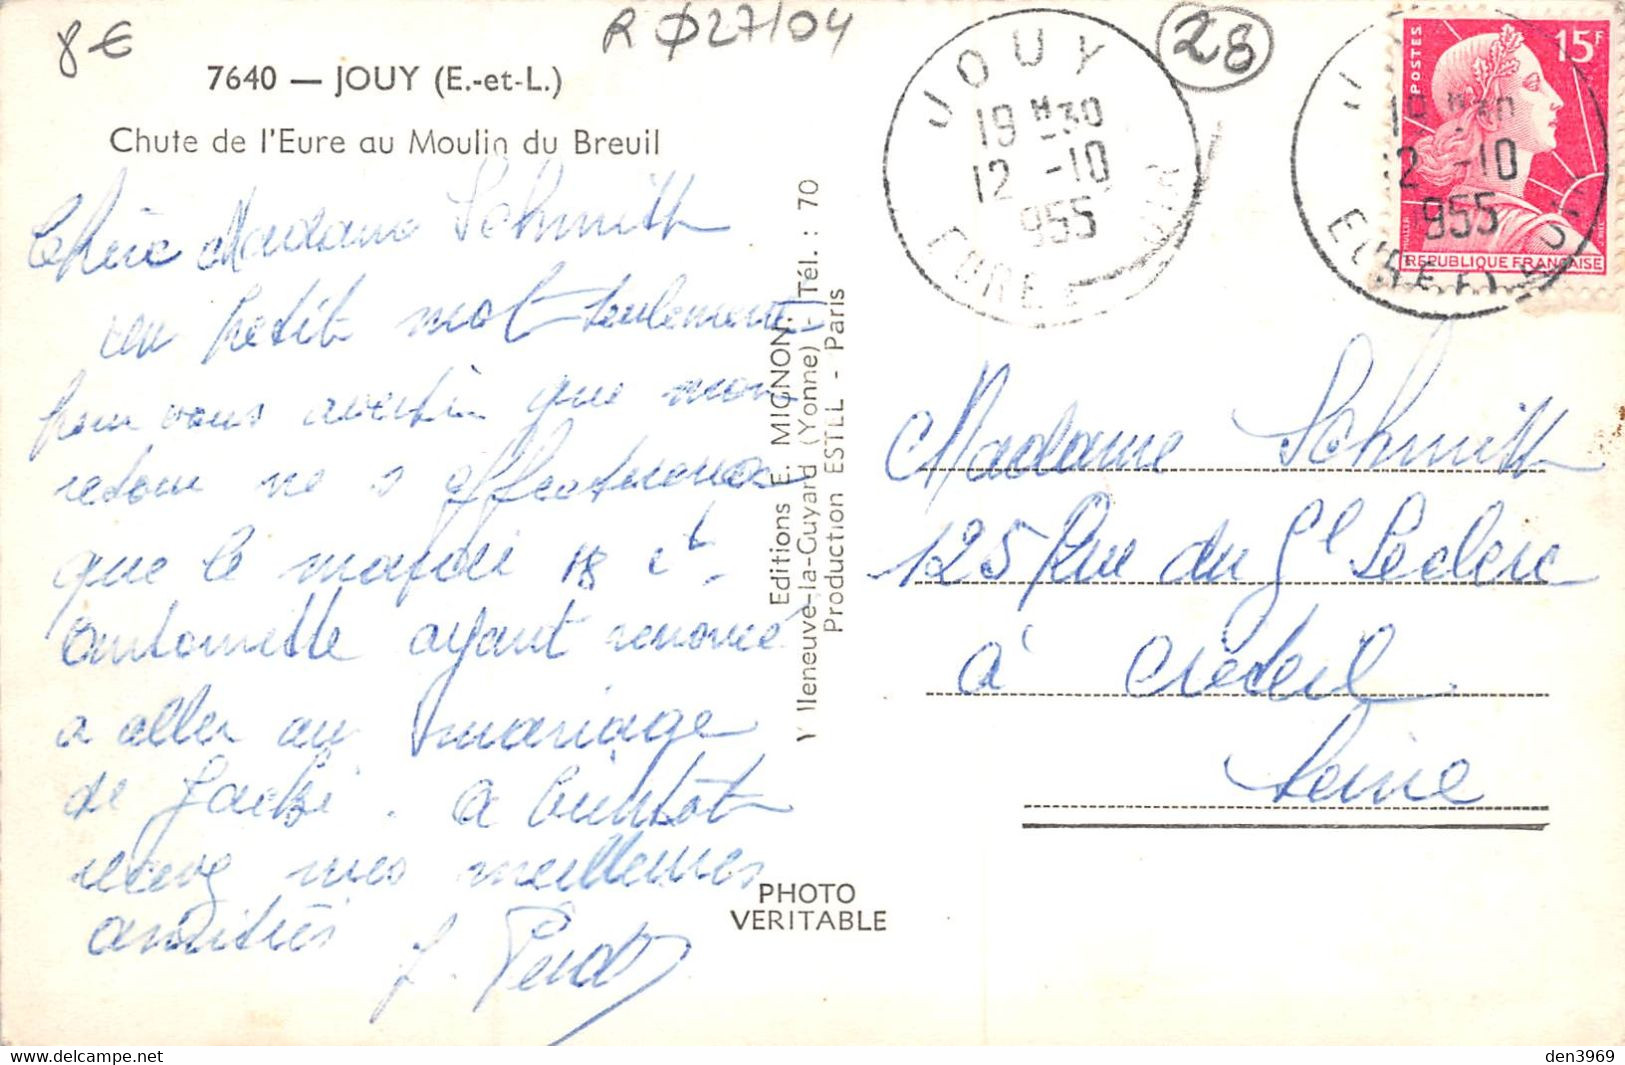 8€
R Ø27/04
28
7640 — JOUY (E.-et-L.)
Chute de l'Eure au Moulin du Breuil
Chère Madame Schmitt
un petit mot seulement
pour vous avertir que mon
retour ne s effectuera
que le mardi 18 ct.
Antoinette ayant renoncé
a aller au mariage
de Jacki. A bientôt
recevez mes meilleures
amitiés
Editions E. MIGNON
Villeneuve-la-Guyard (Yonne) - Tél. : 70
Production ESTLL - Paris
PHOTO
VERITABLE
JOUY
19 H30
12 -10
955
EURE E
JOUY
19 H30
12 -10
955
EURE ET
POSTES
15F
MULLER
REPUBLIQUE FRANÇAISE
Madame Schmitt
125 Rue du Gl Leclerc
à Créteil
Seine
den3969